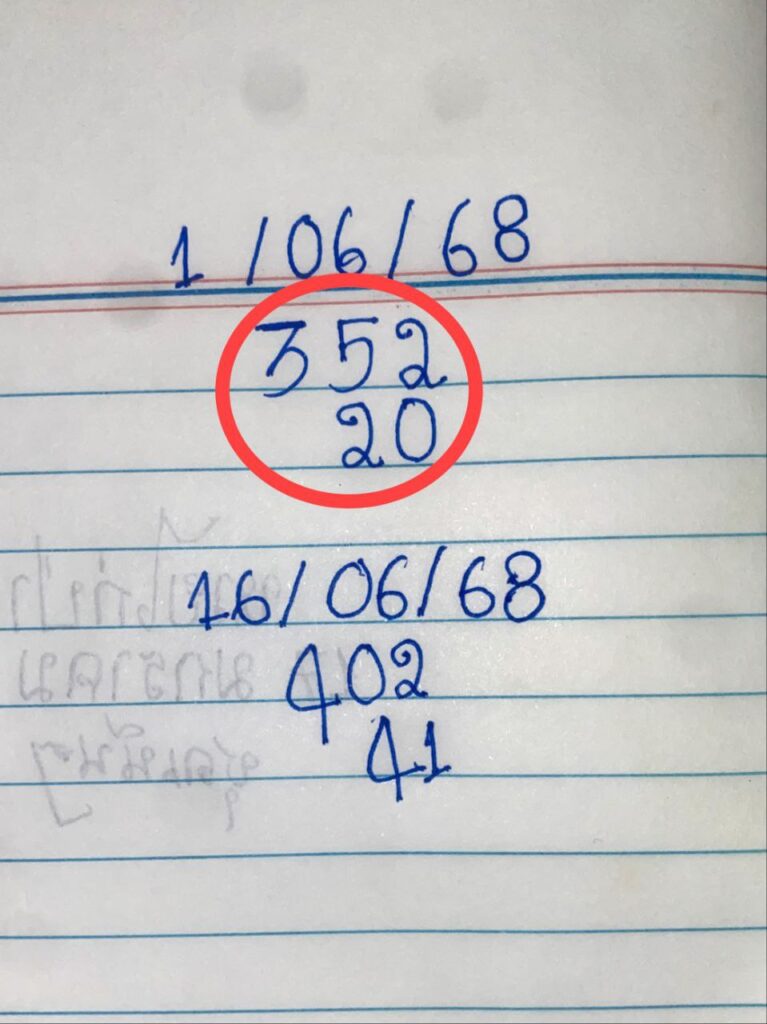 1/06/68
352
20
16/06/68
402
41